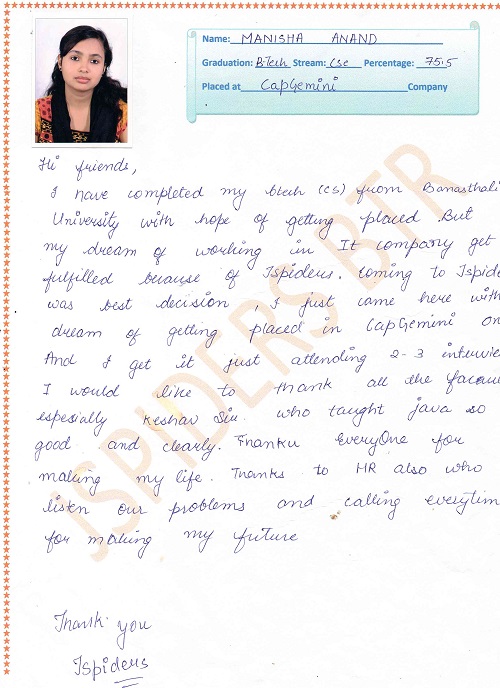 Name: MANISHA ANAND
Graduation: BTech Stream: CSC Percentage: 75.5
Placed at CapGemini Company
Hi friends,
I have completed my btech (CS) from Banasthali
University with hope of getting placed. But
my dream of working in It company get
fulfilled because of Jspiders. Coming to Jspide
was best decision, I just came here with
dream of getting placed in CapGemini on
And I get it just attending 2-3 intervie
I would like to thank all the facau
especially Keshav Sir who taught java so
good and clearly. Thanku EveryOne for
making my life. Thanks to HR also who
listen our problems and calling everytim
for making my future
Thank you
Jspiders
JSPIDERS BTR